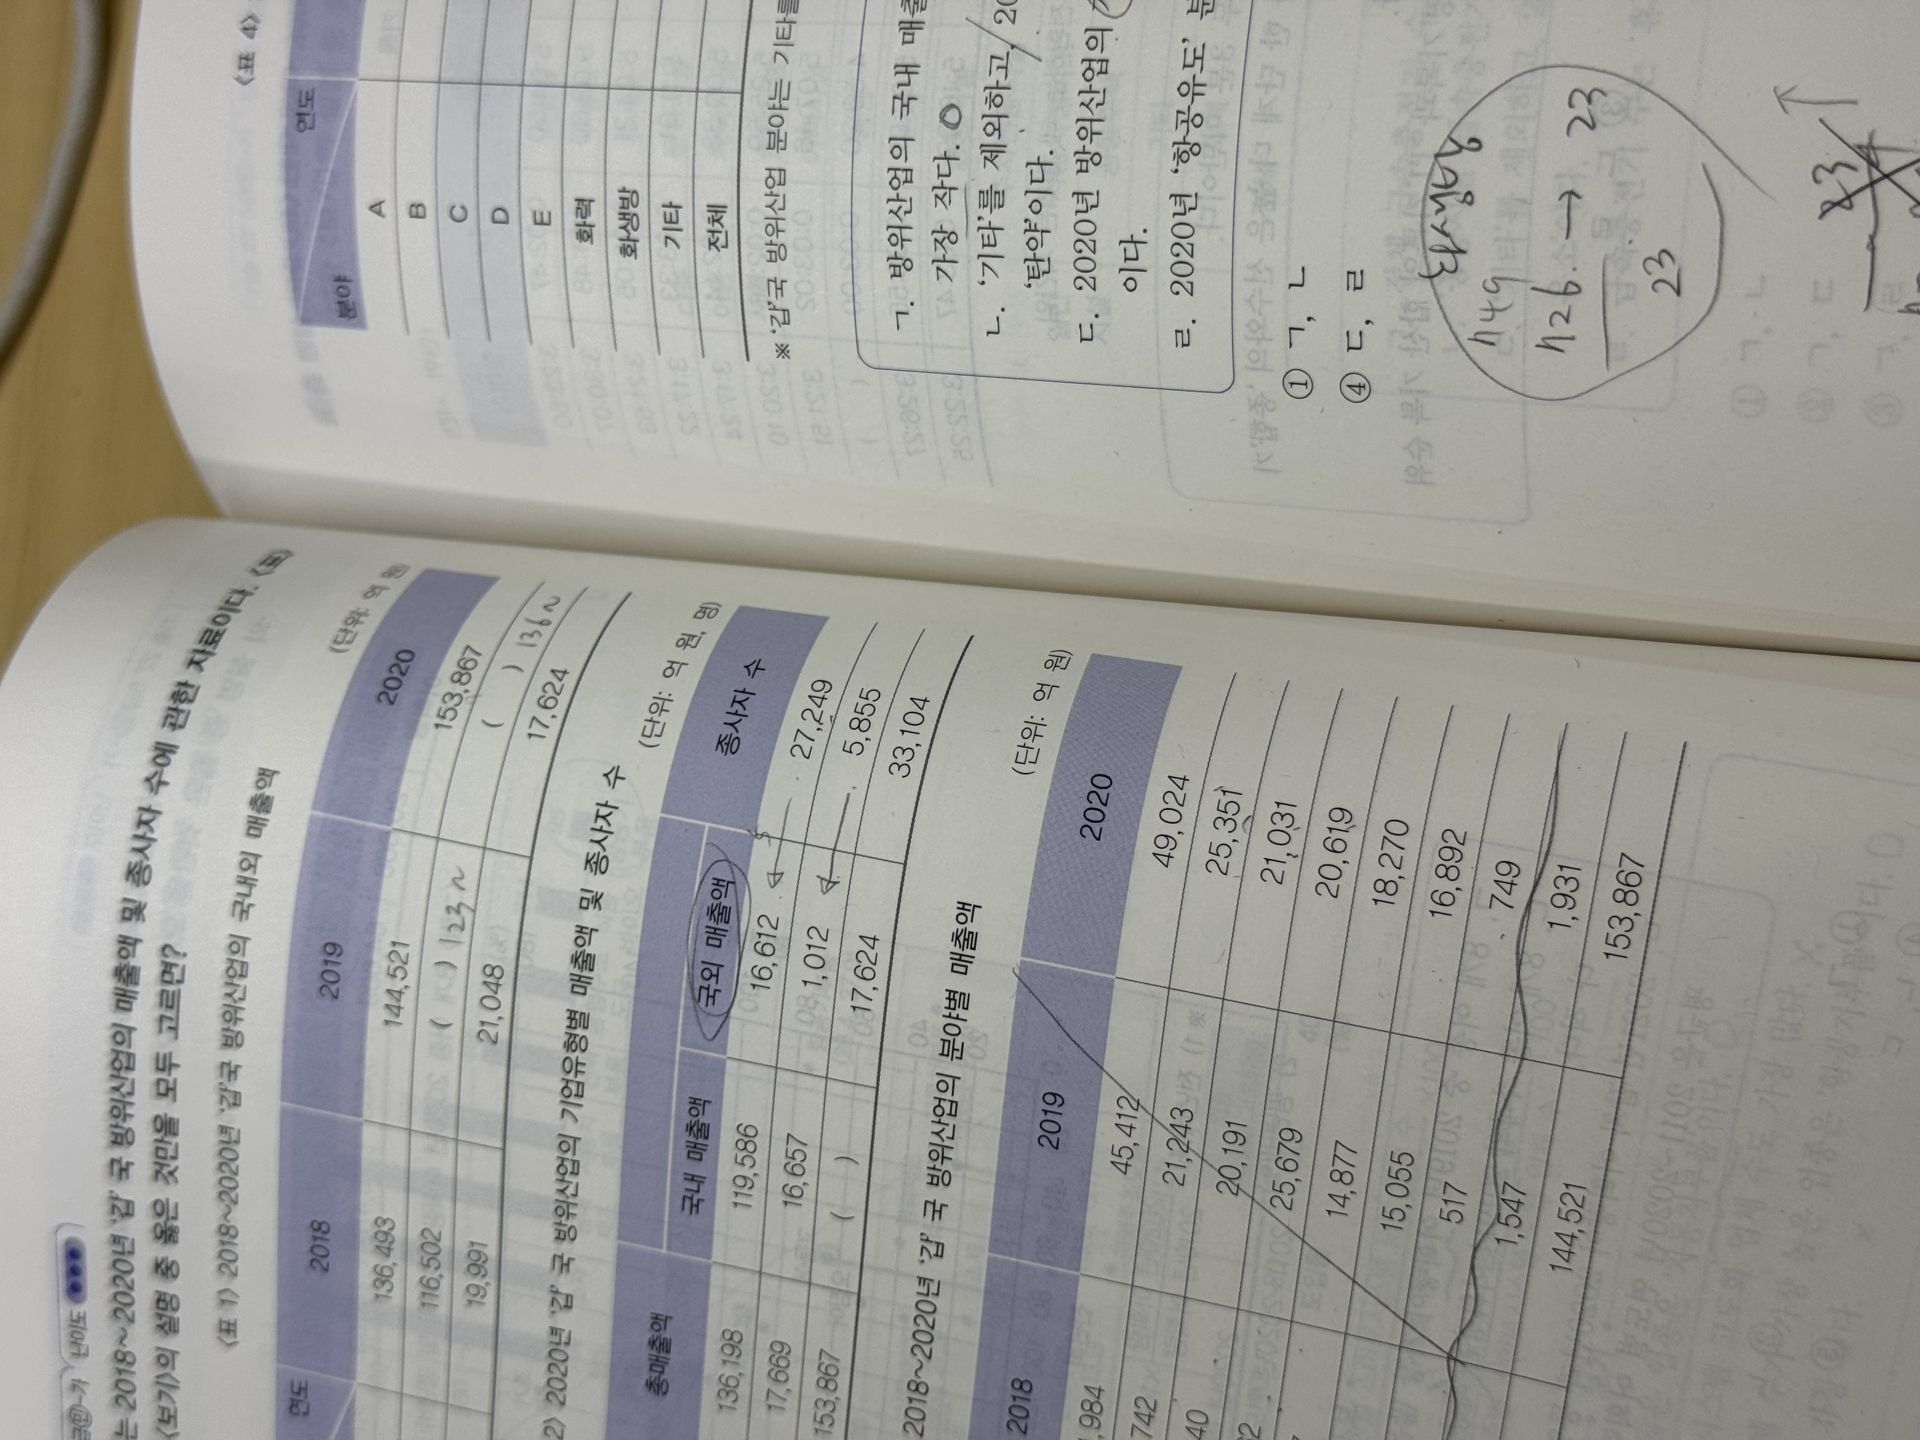 난이도
는 2018~2020년 '갑'국 방위산업의 매출액 및 종사자 수에 관한 자료이다. 〈표
〈보기〉의 설명 중 옳은 것만을 모두 고르면?
〈표 1〉 2018~2020년 '갑'국 방위산업의 국내외 매출액
(단위: 억 원)
연도 2018 2019 2020
136,493 144,521 153,867
116,502 ( ) 123 ( ) 136
19,991 21,048 17,624
2〉 2020년 '갑'국 방위산업의 기업유형별 매출액 및 종사자 수
(단위: 억 원, 명)
총매출액 국내 매출액 국외 매출액 종사자 수
136,198 119,586 16,612 27,249
17,669 16,657 1,012 5,855
153,867 ( ) 17,624 33,104
2018~2020년 '갑'국 방위산업의 분야별 매출액
(단위: 억 원)
2018 2019 2020
,984 45,412 49,024
742 21,243 25,351
40 20,191 21,031
25,679 20,619
14,877 18,270
15,055 16,892
517 749
1,547 1,931
144,521 153,867
〈표 4〉
분야 연도
A
B
C
D
E
화력
화생방
기타
전체
※ '갑'국 방위산업 분야는 기타를
ㄱ. 방위산업의 국내 매출
가장 작다. O
ㄴ. '기타'를 제외하고, 20
'탄약'이다.
ㄷ. 2020년 방위산업의
이다.
ㄹ. 2020년 '항공유도' 분
① ㄱ, ㄴ
④ ㄷ, ㄹ
49
26 → 23
23
23